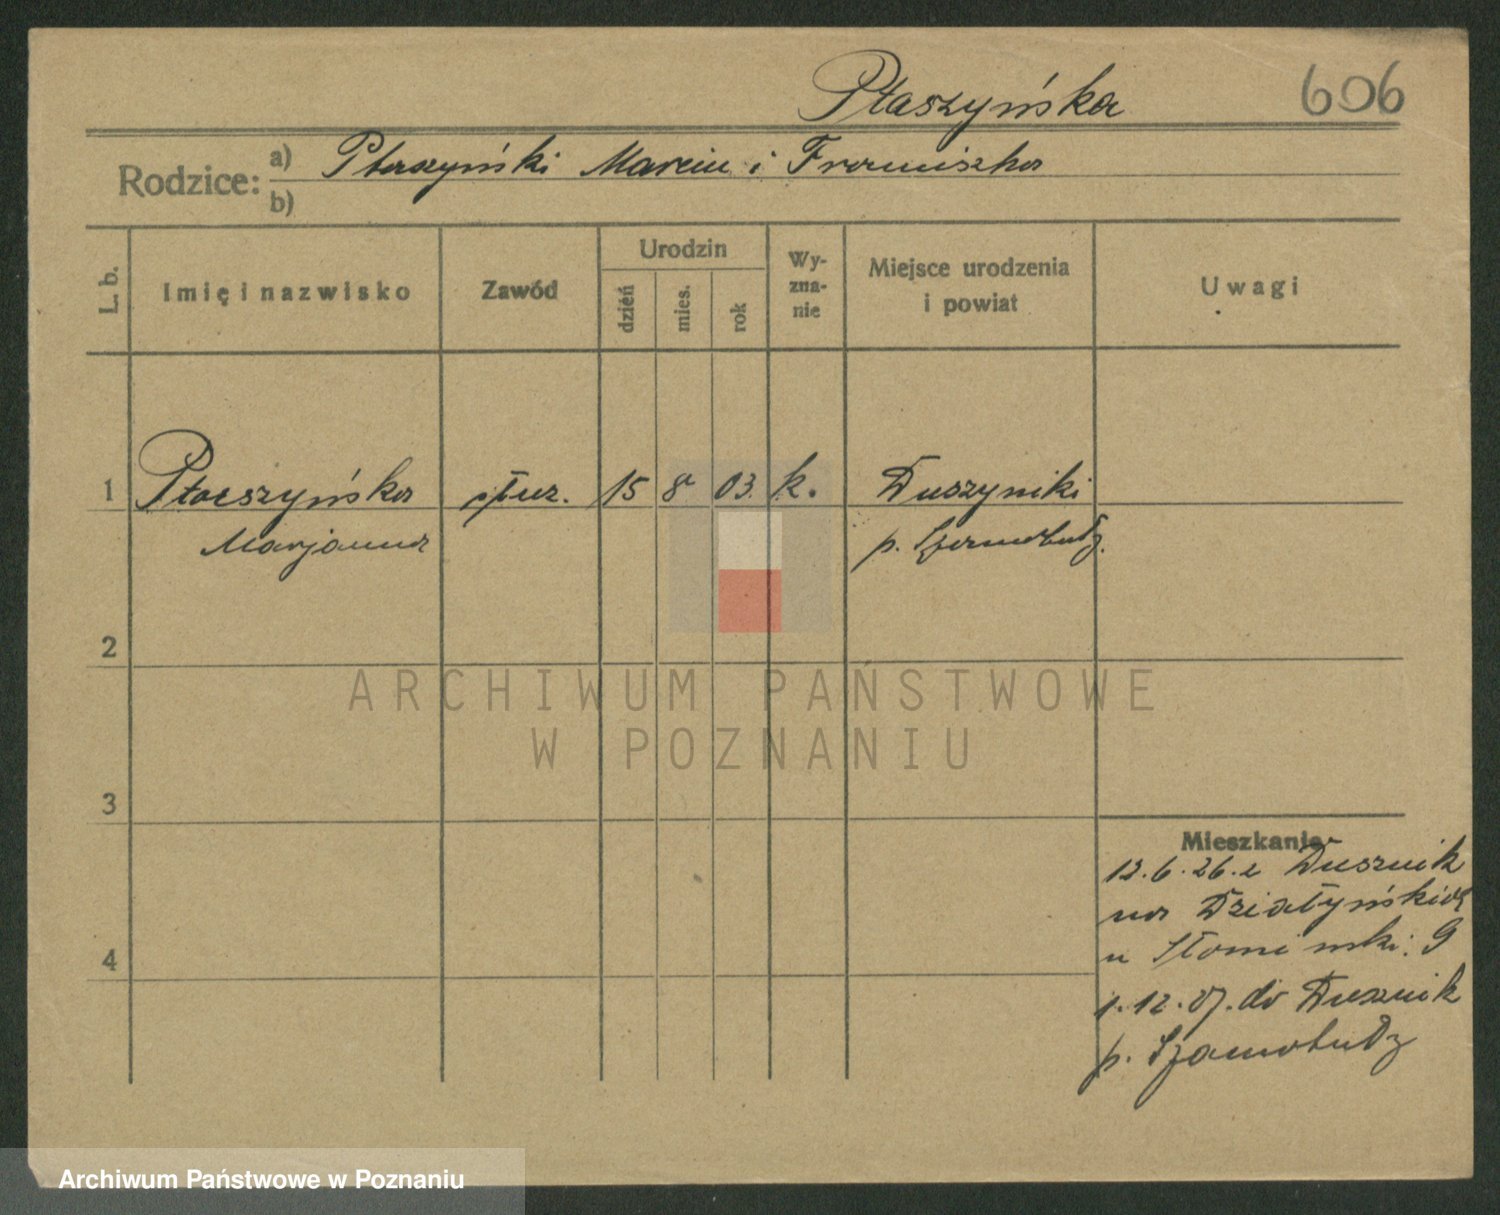 Ptaszyńska
606
Rodzice: a) Ptaszyński Marcin i Franciszka
b)
L. b.
Imię i nazwisko
Zawód
Urodzin
dzień
mies.
rok
Wy-
zna-
nie
Miejsce urodzenia
i powiat
Uwagi
1 Ptaszyńska służ. 15 8 03. k. Duszyniki
Marjanna p. Szamotuły.
2
3
4
ARCHIWUM PAŃSTWOWE
W POZNANIU
Mieszkanie
12.6.26. z Dusznik
na Działyńskich
u Słomińki. 9
1.12.27. do Dusznik
p. Szamotuły
Archiwum Państwowe w Poznaniu